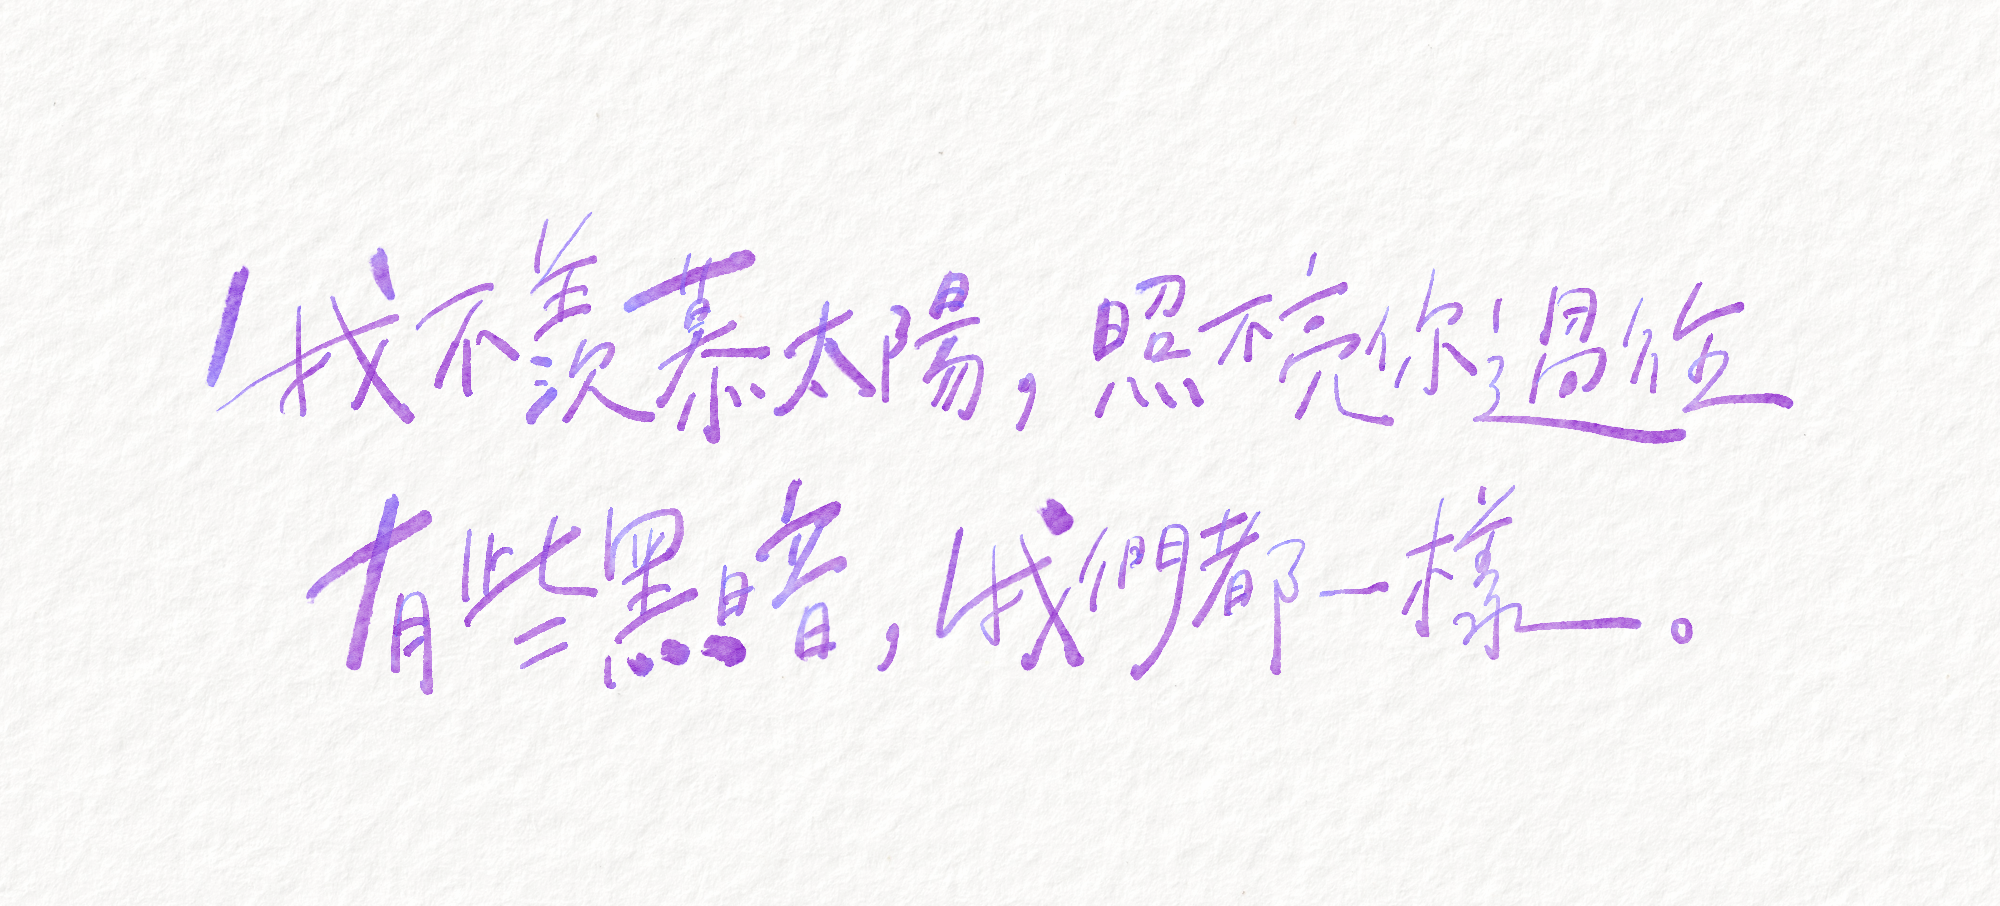 我不羨慕太陽，照不亮你過往
有些黑暗，我們都一樣。